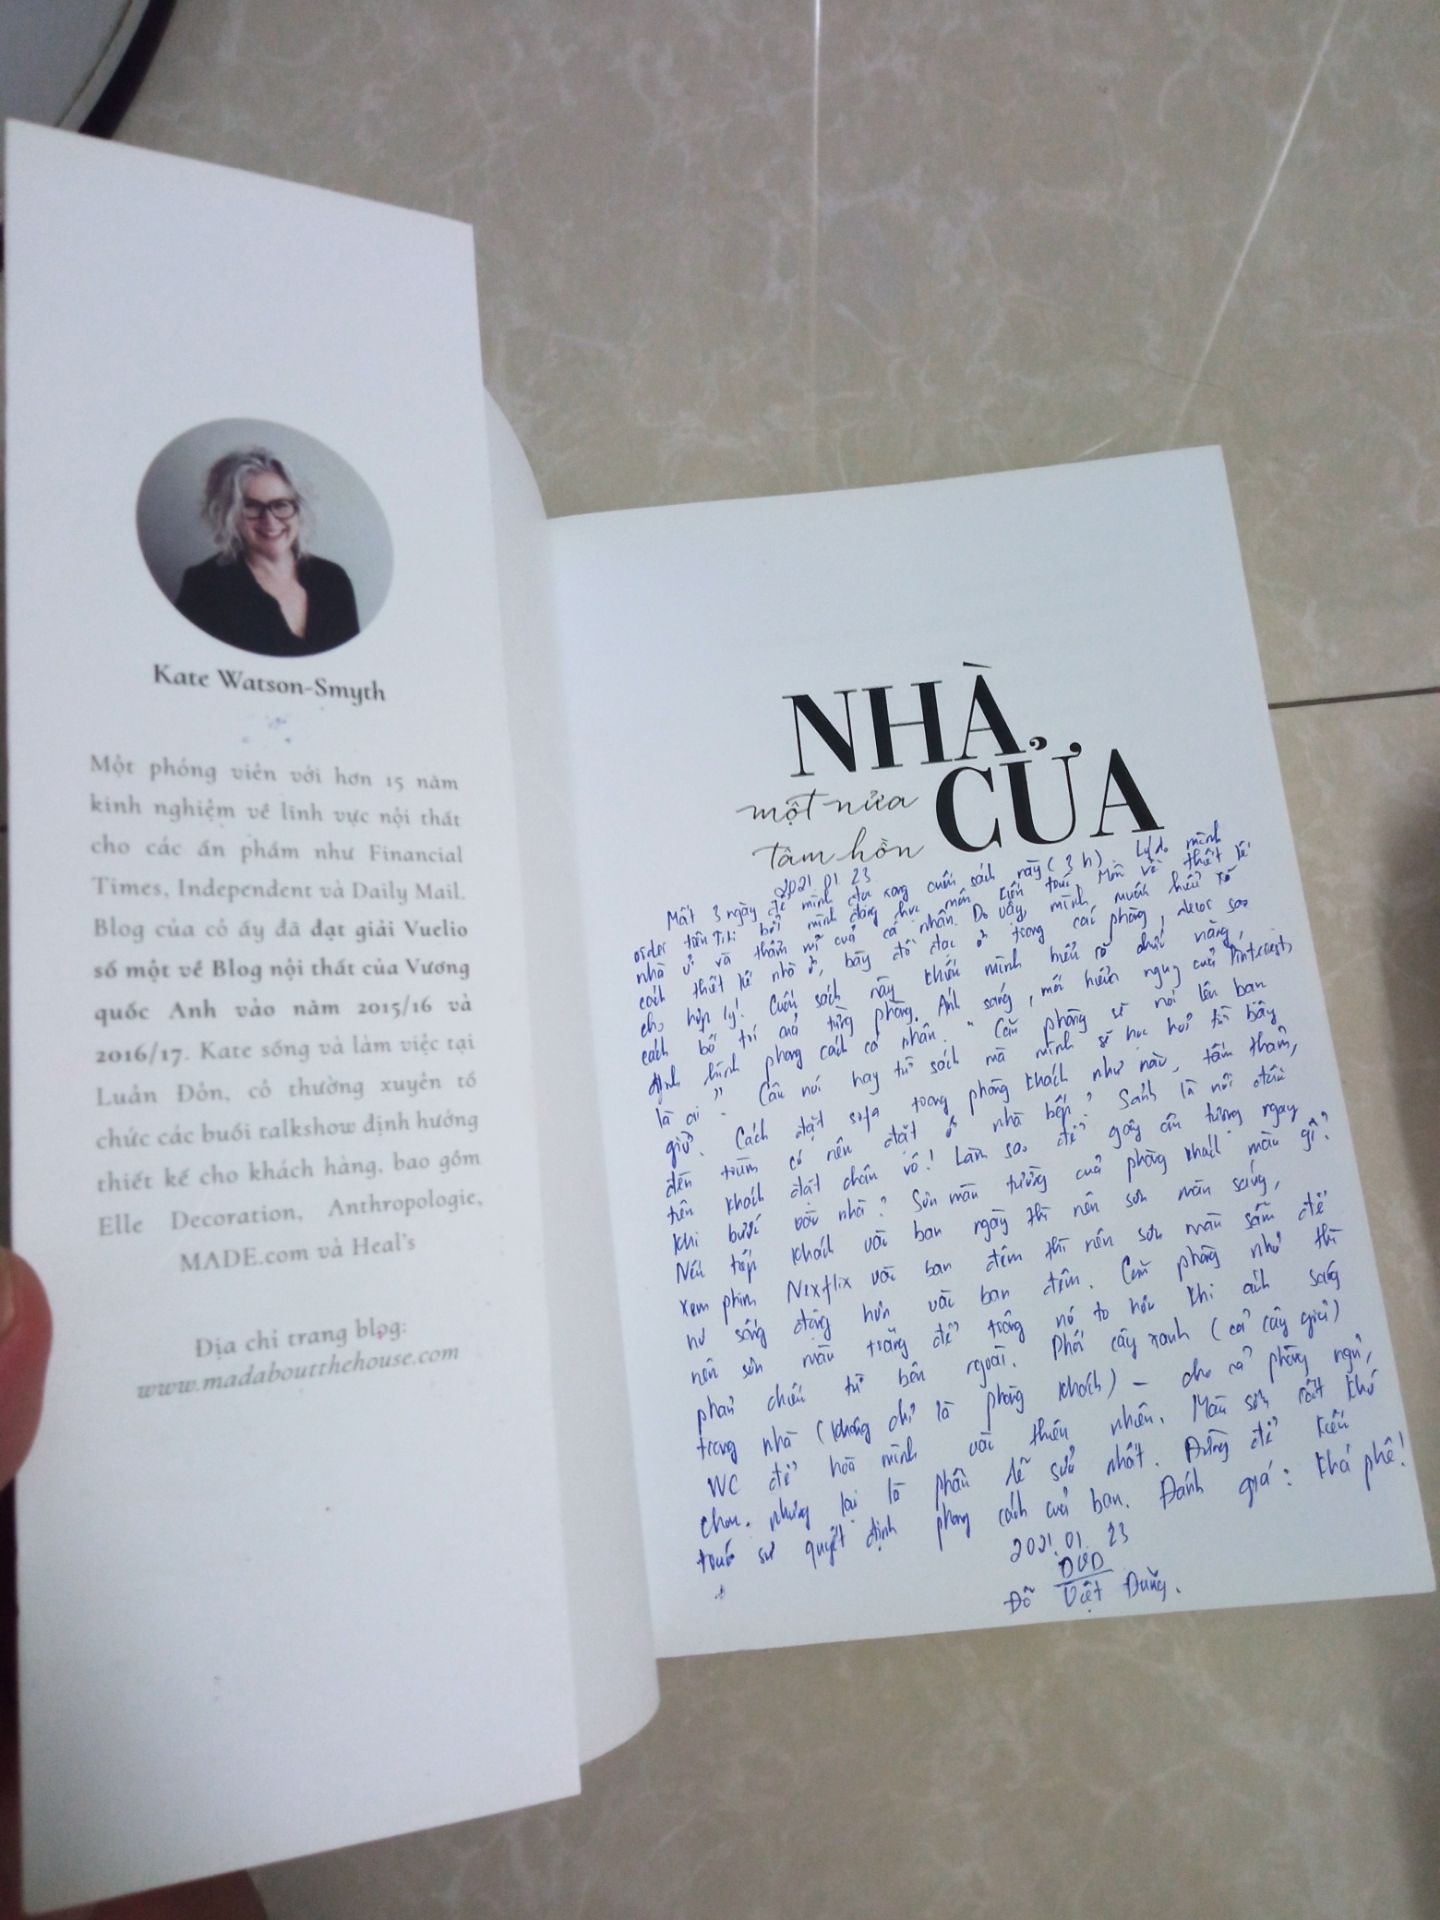 Kate Watson-Smyth
Một phóng viên với hơn 15 năm
kinh nghiệm về lĩnh vực nội thất
cho các ấn phẩm như Financial
Times, Independent và Daily Mail.
Blog của cô ấy đã đạt giải Vuelio
số một về Blog nội thất của Vương
quốc Anh vào năm 2015/16 và
2016/17. Kate sống và làm việc tại
Luân Đôn, cô thường xuyên tổ
chức các buổi talkshow định hướng
thiết kế cho khách hàng, bao gồm
Elle Decoration, Anthropologie,
MADE.com và Heal's
Địa chỉ trang blog:
www.madaboutthehouse.com
NHÀ,
một nửa CỬA
tâm hồn
2021 01 23
Mất 3 ngày để mình đọc xong cuốn sách này (3h). Lý do mình
order trên Tiki bởi mình đang học môn kiến trúc. Môn về thiết kế
nhà ở và thẩm mĩ của cá nhân. Do vậy, mình muốn hiểu rõ
cách thiết kế nhà ở, bày đồ đạc ở trong các phòng, decor sao
cho hợp lý! Cuốn sách này khiến mình hiểu rõ chức năng,
cách bố trí của từng phòng. Ánh sáng, mối hiểm nguy của Pinterest,
định hình phong cách cá nhân. "Căn phòng sẽ nói lên bạn
là ai". Câu nói hay từ sách mà mình sẽ học hỏi từ bây
giờ. Cách đặt sofa trong phòng khách như nào, tấm thảm,
đèn trùm có nên đặt ở nhà bếp? Sảnh là nơi đầu
tiên khách đặt chân vô! Làm sao để gây ấn tượng ngay
khi bước vào nhà? Sơn màu tường của phòng khách màu gì?
Nếu tiếp khách vào ban ngày thì nên sơn màu sáng,
xem phim Nexflix vào ban đêm thì nên sơn màu sẫm để
nó sống động hơn vào ban đêm. Căn phòng nhỏ thì
nên sơn màu trắng để trông nó to hơn khi ánh sáng
phản chiếu từ bên ngoài. Phối cây xanh (cả cây giả)
trong nhà (không chỉ là phòng khách) – cho cả phòng ngủ,
WC để hoà mình vào thiên nhiên. Màu sơn rất khó
chọn. nhưng lại là phần dễ sửa nhất. Đừng để kiến
trúc sư quyết định phong cách của bạn. Đánh giá: khá phê!
2021.01.23
DVD
Đỗ Việt Dũng.